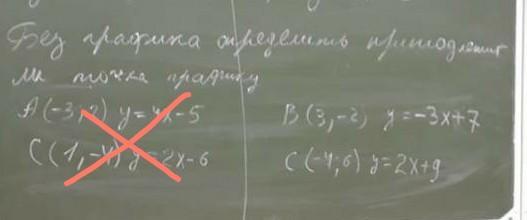 Без графика определить принадлежит
ли точка графику
A(-3;2) y=4x-5 B(3,-2) y=-3x+7
C(1,-4) y=2x-6 C(-4;6) y=2x+9